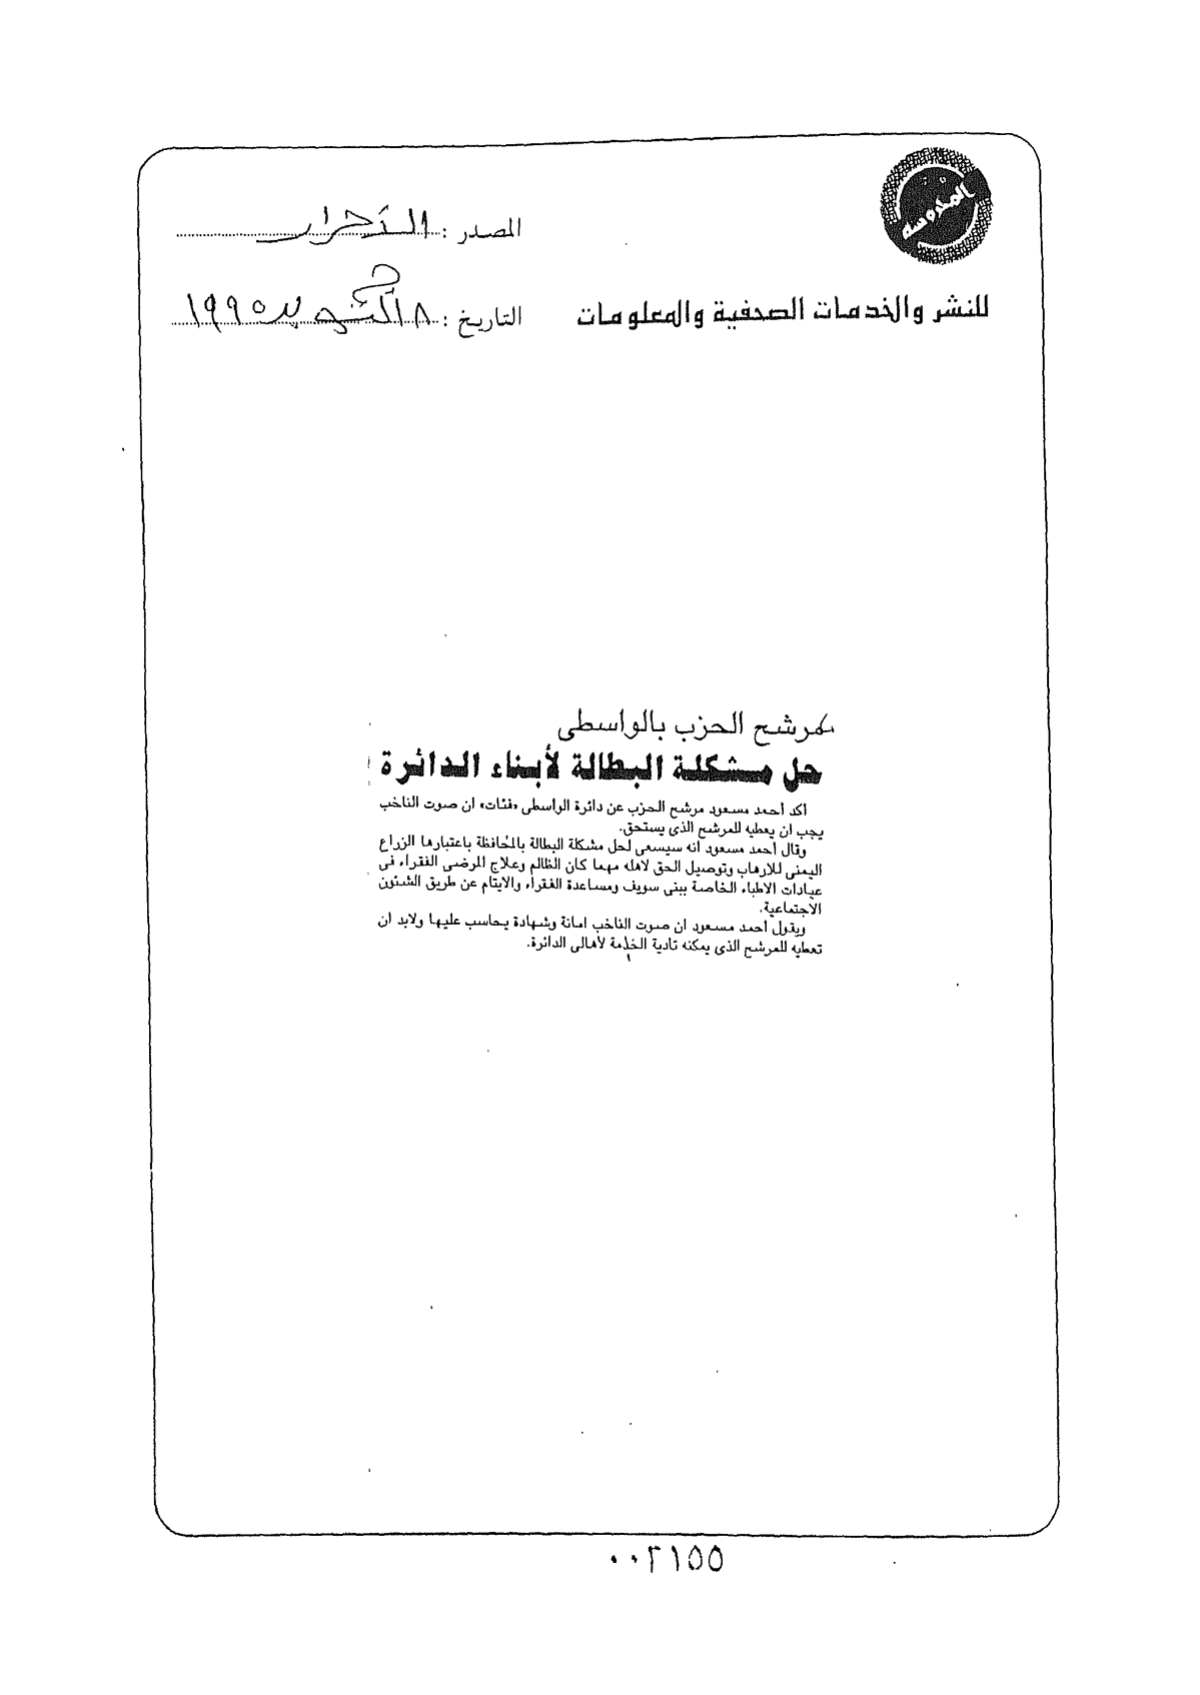 المصدر : الأحرار
للنشر والخدمات الصحفية والمعلومات
التاريخ : ١٩٩٥
مرشح الحزب بالواسطى
حل مشكلة البطالة لأبناء الدائرة
اكد أحمد مسعود مرشح الحزب عن دائرة الواسطى «فئات» ان صوت الناخب
يجب ان يعطيه للمرشح الذى يستحق.
وقال أحمد مسعود انه سيسعى لحل مشكلة البطالة بالمحافظة باعتبارها الزراع
اليمنى للارهاب وتوصيل الحق لاهله مهما كان الظالم وعلاج المرضى الفقراء فى
عيادات الاطباء الخاصة ببنى سويف ومساعدة الفقراء والايتام عن طريق الشئون
الاجتماعية.
ويقول أحمد مسعود ان صوت الناخب امانة وشهادة يحاسب عليها ولابد ان
تعطيه للمرشح الذى يمكنه تادية الخدمة لأهالى الدائرة.
٠٠٢١٥٥